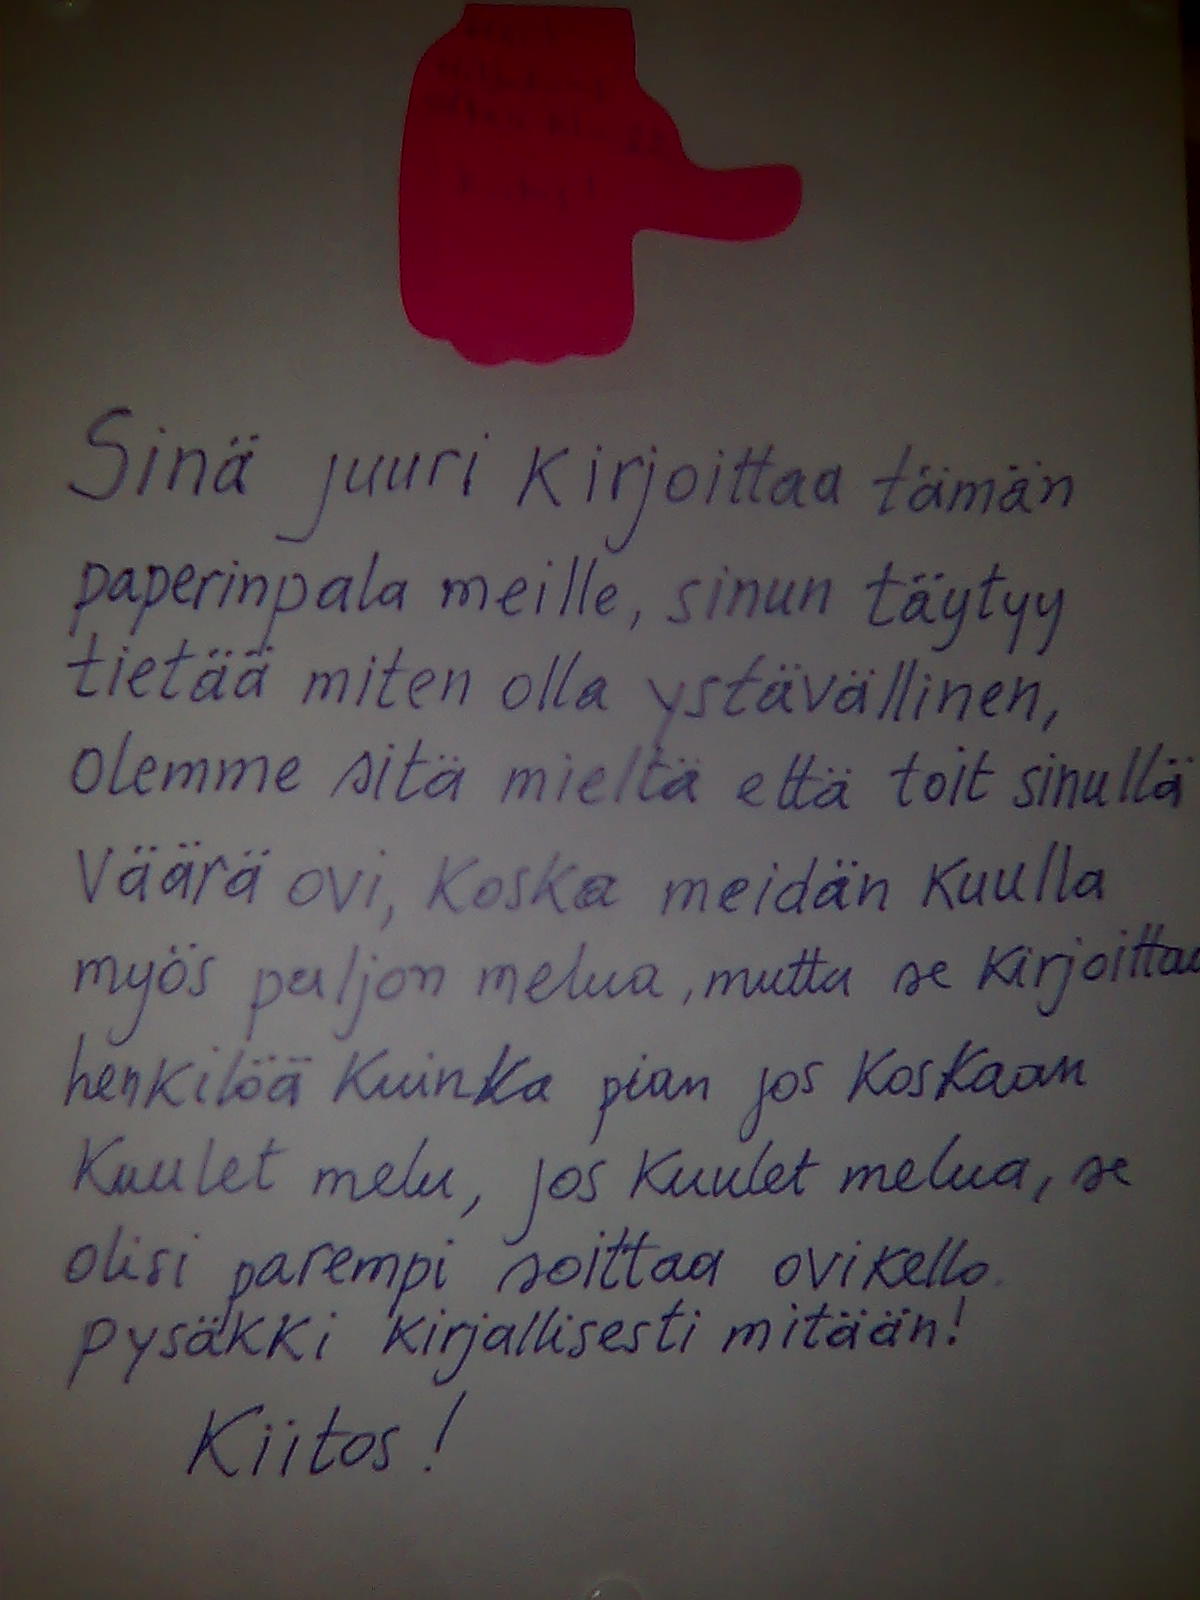 Sinä juuri kirjoittaa tämän
paperinpala meille, sinun täytyy
tietää miten olla ystävällinen,
olemme sitä mieltä että toit sinullä
väärä ovi, koska meidän kuulla
myös paljon melua, mutta se kirjoittaa
henkilöä kuinka pian jos koskaan
kuulet melu, jos kuulet melua, se
olisi parempi soittaa ovikello.
pysäkki kirjallisesti mitään!
Kiitos!